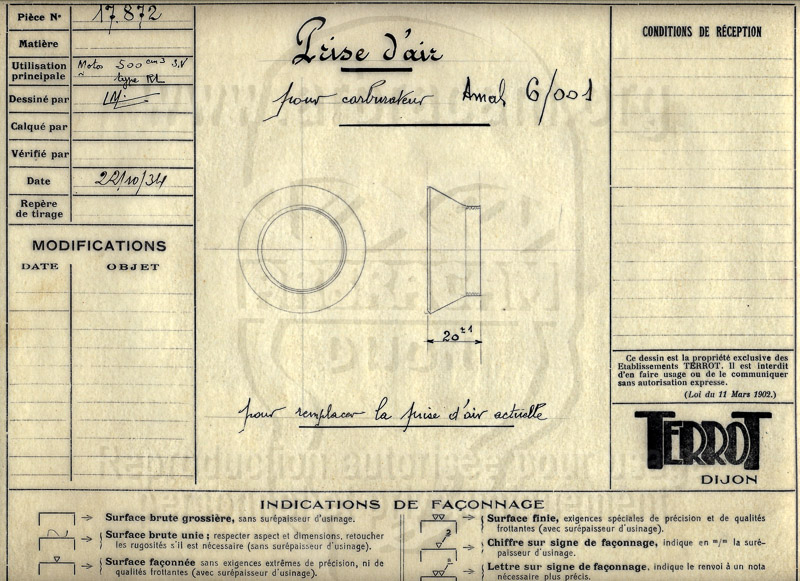 Pièce N° 17.872
Matière
Utilisation principale Motos 500 cm3 S.V
type RL
Dessiné par
Calqué par
Vérifié par
Date 22/10/34
Repère
de tirage
MODIFICATIONS
DATE OBJET
Prise d'air
pour carburateur Amal 6/001
20 ±1
pour remplacer la prise d'air actuelle
CONDITIONS DE RÉCEPTION
Ce dessin est la propriété exclusive des
Etablissements TERROT. Il est interdit
d'en faire usage ou de le communiquer
sans autorisation expresse.
(Loi du 11 Mars 1902.)
TERROT
DIJON
INDICATIONS DE FAÇONNAGE
Surface brute grossière, sans surépaisseur d'usinage.
Surface brute unie ; respecter aspect et dimensions, retoucher
les rugosités s'il est nécessaire (sans surépaisseur d'usinage).
Surface façonnée sans exigences extrêmes de précision, ni de
qualités frottantes (avec surépaisseur d'usinage).
Surface finie, exigences spéciales de précision et de qualités
frottantes (avec surépaisseur d'usinage).
Chiffre sur signe de façonnage, indique en m/m la suré-
paisseur d'usinage.
Lettre sur signe de façonnage, indique le renvoi à un nota
nécessaire plus précis.
Reproduction autorisée pour